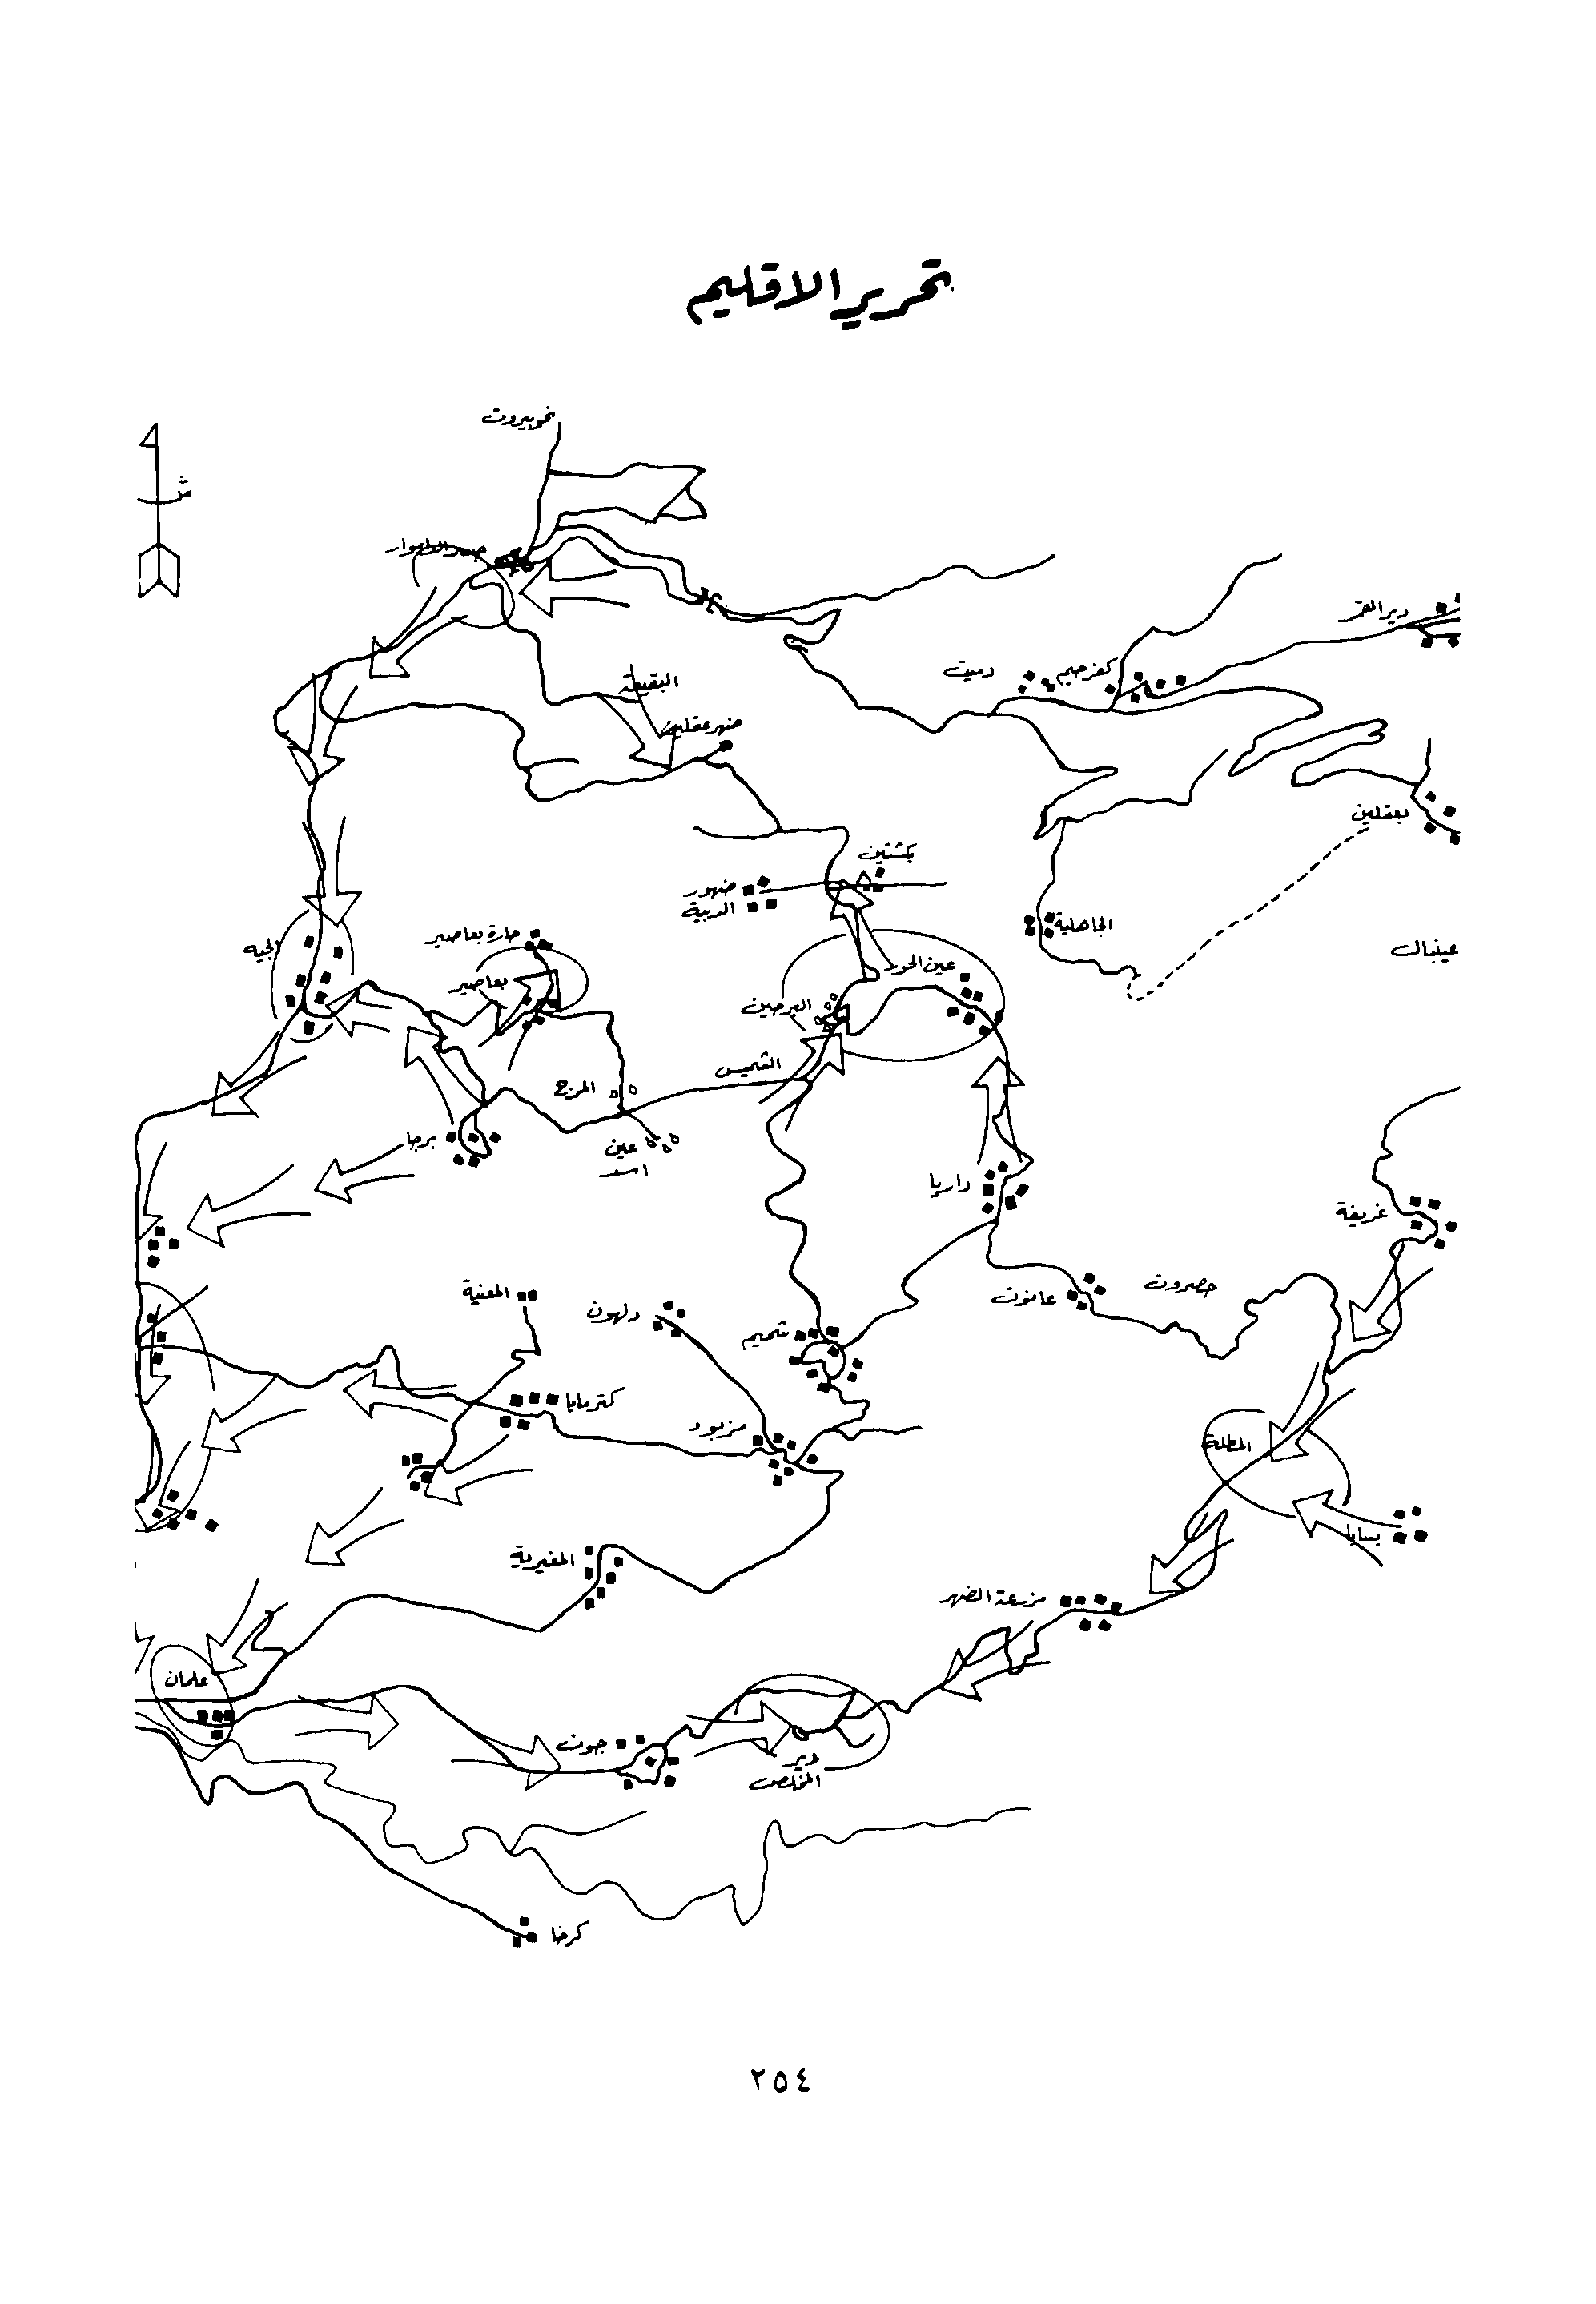 تحرير الاقليم
نحو بيروت
ش
دير القمر
كفرحيم
دميت
البقيعة
ضهر عقلين
بعقلين
بكشتين
ضهور
الدبية
الجاهلية
عينبال
حارة بعاصير
الجيه
عين الحور
بعاصير
البرجين
الشميس
المرج
برجا
عين
اسد
داريا
غريفة
حصروت
عانوت
المعنية
دلهون
شحيم
كترمايا
مزبود
المطلة
بسابا
المغيرية
مزرعة الضهر
علمان
جون
دير
المخلص
كرخا
٢٥٤